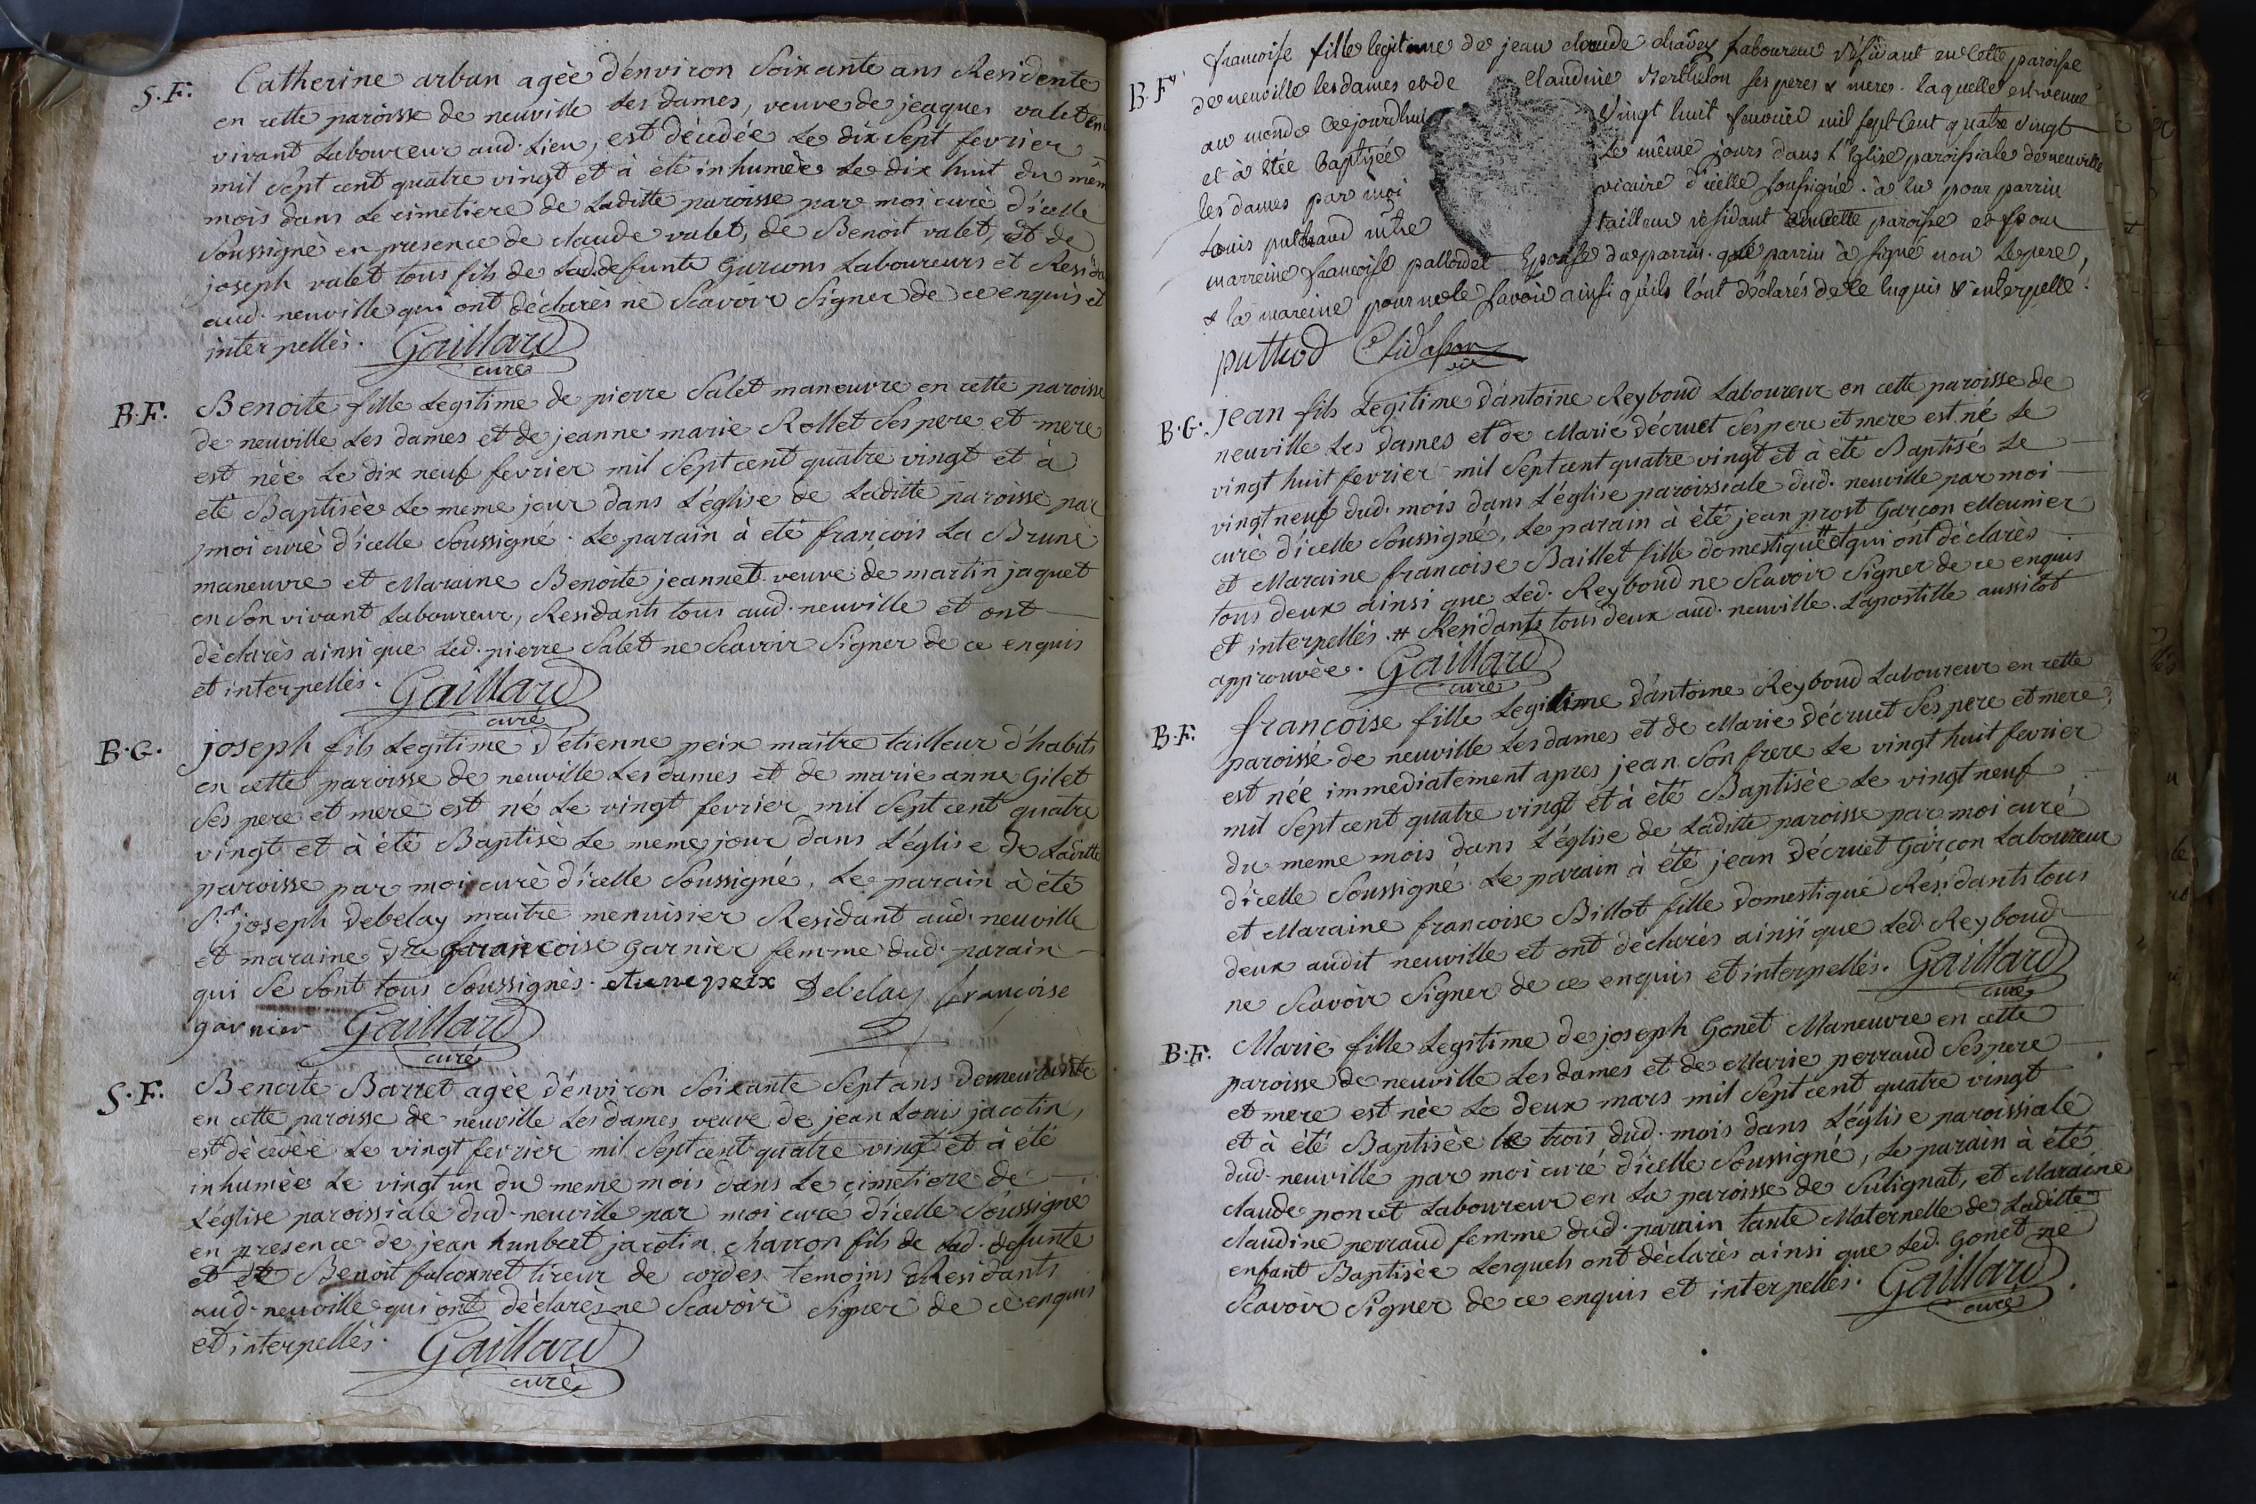 S.F. Catherine arban agèe d'environ Soixante ans Residente
en cette paroisse de neuville Les dames, veuve de jeaques valet en
vivant Laboureur aud. Lieu, est décedée Le dix Sept fevrier
mil Sept cent quatre vingt et à été inhumèe Le dix huit du mêm
mois dans Le cimetiere de Laditte paroisse par moi curè d'icelle
Soussignè en presence de claude valet, de Benoit valet, et de
joseph valet tous fils de Lad. defunte Garcons Laboureurs et Resida
aud. neuville qui ont dèclarès ne Scavoir Signer de ce enquis et
interpellès. Gaillard
curè
B.F. Benoite fille Legitime de pierre Salet maneuvre en cette paroisse
de neuville Les dames et de jeanne marie Rollet Ses pere et mere
est nèe Le dix neuf fevrier mil Sept cent quatre vingt et à
eté Baptisèe Le meme jour dans L'église de Laditte paroisse par
moi curè d'icelle Soussigné. Le parain à eté françois La Brune
maneuvre et Maraine Benoite jeannet veuve de martin jaquet
en Son vivant Laboureur, Residants tous aud. neuville et ont
dèclarès ainsi que Led. pierre Salet ne Scavoir Signer de ce enquis
et interpellès. Gaillard
curé
B.G. joseph fils Legitime d'etienne peix maitre tailleur d'habits
en cette paroisse de neuville Les dames et de marie anne Gilet
Ses pere et mere est né Le vingt fevrier mil Sept cent quatre
vingt et à été Baptisè Le meme jour dans L'église de Laditte
paroisse par moi curè d'icelle Soussigné, Le parain à été
S.r joseph debelay maitre menuisier Residant aud. neuville
et maraine d.lle francoise garnier femme dud. parain
qui Se Sont tous Soussignès. etiene peix Debelay françoise
garnier Gaillard
curé
S.F. Benoite Barret agèe d'environ Soixante Sept ans demeurante
en cette paroisse de neuville Les dames, veuve de jean Louis jacotin,
est dècedèe Le vingt fevrier mil Sept cent quatre vingt et à été
inhumèe Le vingt un du meme mois dans Le cimetiere de
L'église paroissiale dud. neuville par moi curé d'icelle Soussigné
en presence de jean humbert jacotin charron fils de Lad. defunte
et de Benoit falconnet tireur de cordes temoins Residants
aud. neuville qui ont dèclarès ne Scavoir Signer de ce enquis
et interpellès. Gaillard
curè
B.F. francoise fille legitime de jean claude laboureur résidant en cette paroisse
de neuville les dames et de claudine Berthelon ses peres & meres. laquelle est venue
au monde cejourdhui vingt huit fevrier mil sept cent quatre vingt
et à étée Baptisée le même jours dans L'Eglise paroissiale de neuville
les dames par moi vicaire d'icelle soussigné. à lu pour parrin
Louis puthaud mtre tailleur résidant en cette paroisse et pour
marreine francoise pallordet Epouse du parrin. que parrin à signé non le pere,
& la mareine pour ne le savoir ainsi qu'ils l'ont déclarés de ce enquis & interpellé.
puthod
B.G. jean fils Legitime d'antoine Reyboud Laboureur en cette paroisse de
neuville Les dames et de Marie décruet Ses pere et mere est né Le
vingt huit fevrier mil Sept cent quatre vingt et à été Baptisé Le
vingt neuf dud. mois dans L'église paroissiale dud. neuville par moi
curè d'icelle Soussigné, Le parain à été jean prost Garçon Meunier
et Maraine francoise Baillet fille domestique # et qui ont dèclarès
tous deux ainsi que Led. Reyboud ne Scavoir Signer de ce enquis
et interpellès. # Residants tous deux aud. neuville. L'apostille aussitot
approuvèe. Gaillard
curé
B.F. francoise fille Legitime d'antoine Reyboud Laboureur en cette
paroisse de neuville Les dames et de Marie décruet Ses pere et mere,
est née immediatement apres jean Son frere Le vingt huit fevrier
mil Sept cent quatre vingt et à été Baptisèe Le vingt neuf
du meme mois dans L'église de Laditte paroisse par moi curé
d'icelle Soussigné. Le parain à été jean décruet Garçon Laboureur
et Maraine francoise Billot fille domestique Residants tous
deux audit neuville et ont déclarès ainsi que Led. Reyboud
ne Scavoir Signer de ce enquis et interpellès. Gaillard
curé
B.F. Marie fille Legitime de joseph Gonet Maneuvre en cette
paroisse de neuville Les dames et de Marie perraud Ses pere
et mere est nèe Le deux mars mil Sept cent quatre vingt
et à été Baptisèe le trois dud. mois dans L'église paroissiale
dud. neuville par moi curé d'icelle Soussigné, Le parain à été
claude poncet Laboureur en La paroisse de Sulignat, et Maraine
claudine perraud femme dud. parain tante Maternelle de Laditte
enfant Baptisèe Lesquels ont dèclarès ainsi que Led. Gonet ne
Scavoir Signer de ce enquis et interpellès. Gaillard
curé